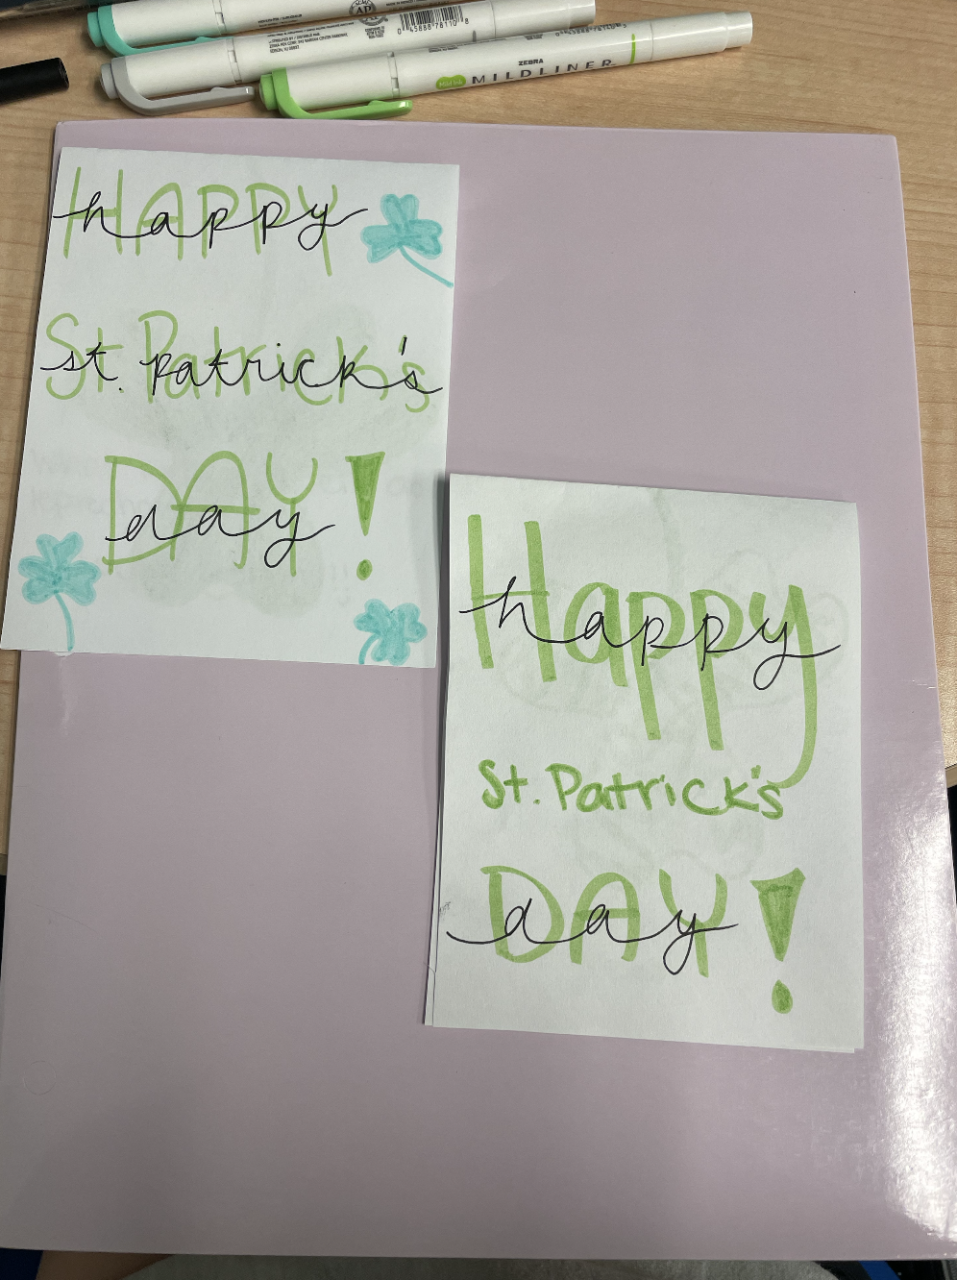 ZEBRA
MILDLINER
HAPPY
happy
St. Patrick's
st. patrick's
DAY!
day
Happy
happy
St. Patrick's
DAY!
day